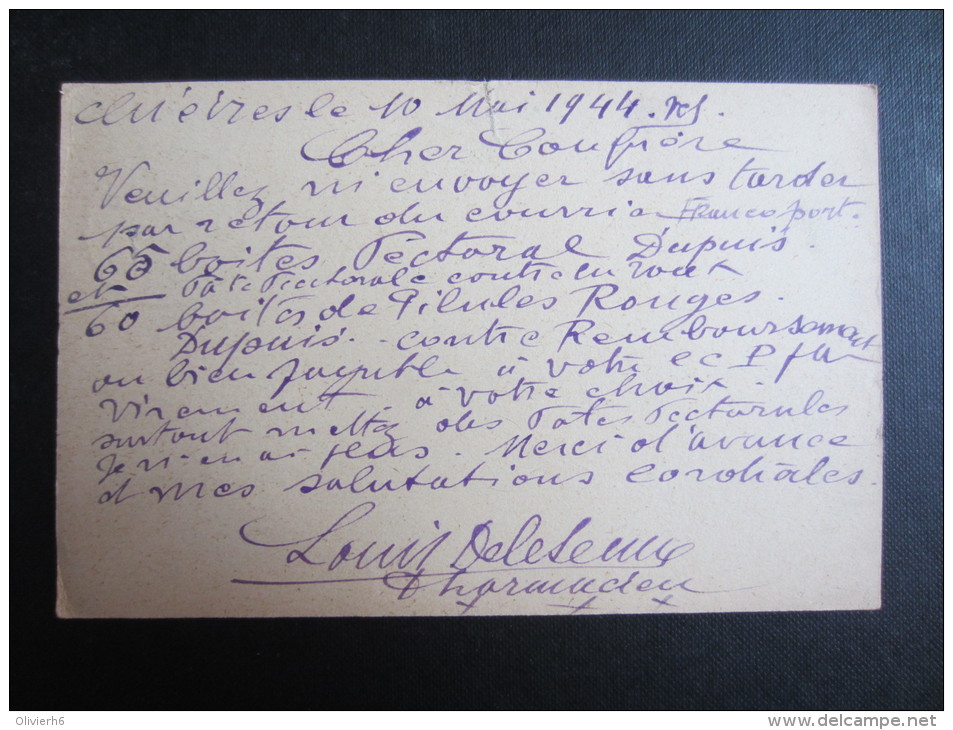 Chièvres le 10 Mai 1944.
Cher Confrère
Veuillez m'envoyer sans tarder
par retour du courrier Franco port.
65 boites Pectoral Dupuis.
et Pate Pectorale contre la toux
60 boites de Pilules Rouges.
Dupuis. contre Remboursement
ou bien payable à votre ccP par
virement, à votre choix.
surtout mettez des Pates Pectorales
je n'en ai plus. Merci d'avance
et mes salutations cordiales.
Louis
Pharmacien
Olivierh6
www.delcampe.net